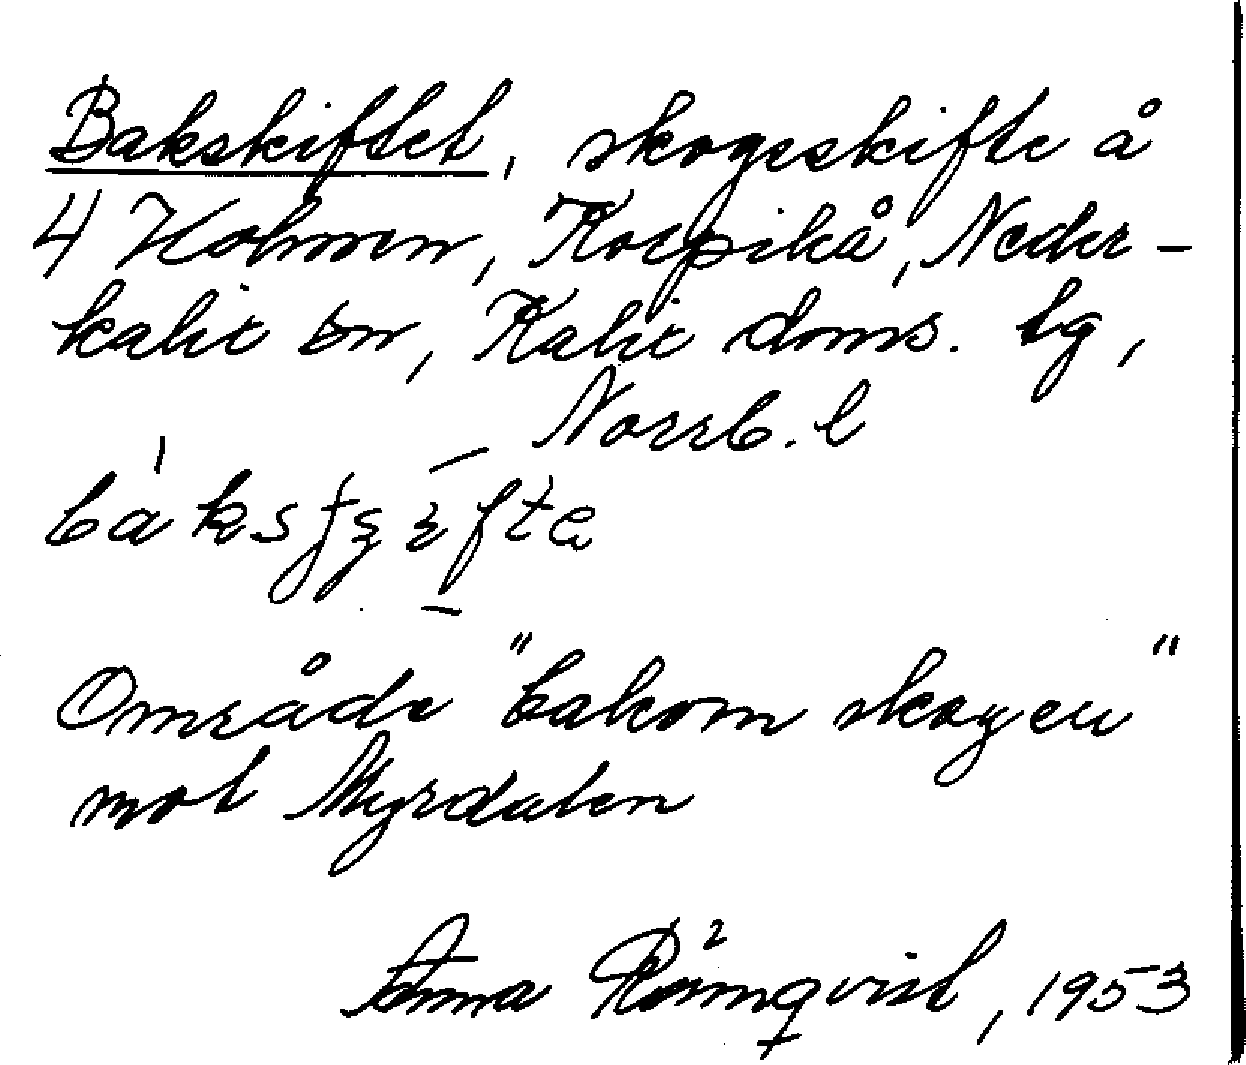 Bakskiftet, skogsskifte å
4 Holmen, Korpikå, Neder-
kalix sn, Kalix doms. lg,
Norrb. l
Område "bakom skogen"
mot Myrdalen
Anna Römqvist, 1953